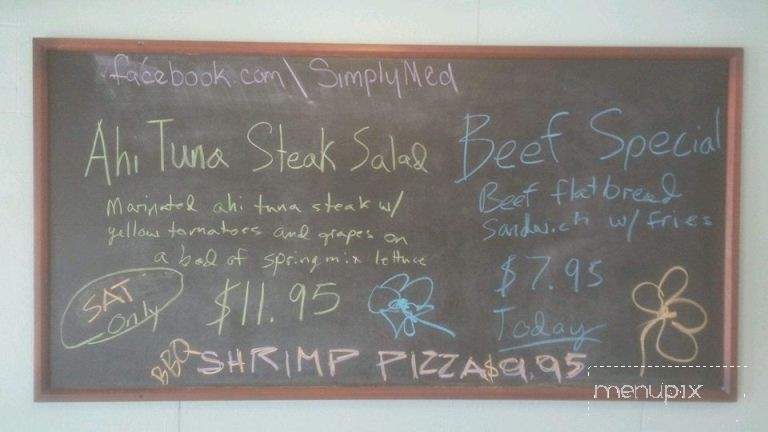 facebook.com\SimplyMed
Ahi Tuna Steak Salad
Marinated ahi tuna steak w/
yellow tomatoes and grapes on
a bed of spring mix lettuce
SAT
only
$11.95
Beef Special
Beef flatbread
Sandwich w/ fries
$7.95
Today
BBQ SHRIMP PIZZA $9.95
menupix